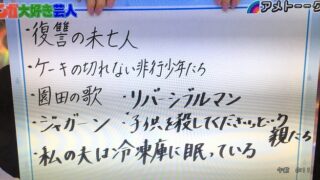 大好き芸人
アメトーーク
・復讐の未亡人
・ケーキの切れない非行少年たち
・園田の歌 ・リバーシブルマン
・ジャガーン ・子供を殺してくださいという親たち
・私の夫は冷凍庫に眠っている
午前